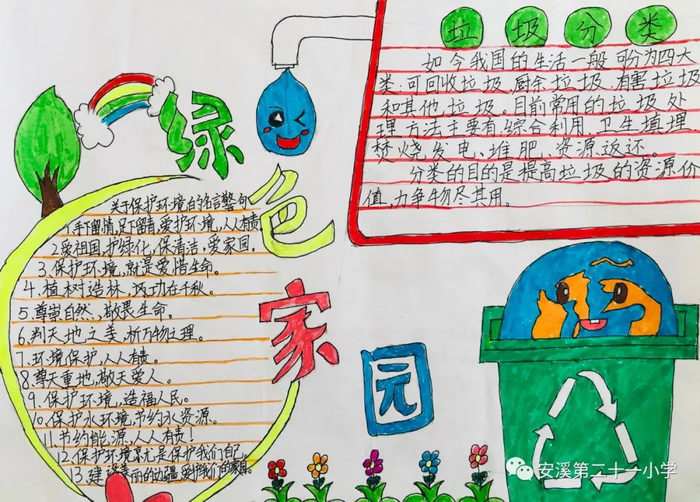 绿色家园
垃圾分类
如今我国的生活一般可分为四大
类,可回收垃圾,厨余垃圾,有害垃圾
和其他垃圾,目前常用的垃圾处
理方法主要有综合利用、卫生填埋
焚烧发电、堆肥、资源返还。
分类的目的是提高垃圾的资源价
值,力争物尽其用。
关于保护环境的名言警句
1.手下留情,足下留情,爱护环境,人人有责
2.爱祖国,护绿化,保清洁,爱家园,
3.保护环境,就是爱惜生命。
4.植树造林,功在千秋。
5.尊重自然、敬畏生命。
6.判天地之美,析万物之理。
7.环境保护,人人有责。
8.尊天重地,敬天爱人。
9.保护环境,造福人民。
10.保护水环境,节约水资源。
11.节约能源,人人有责!
12.保护环境就是保护我们自己
13.建设美丽的
安溪第二十一小学